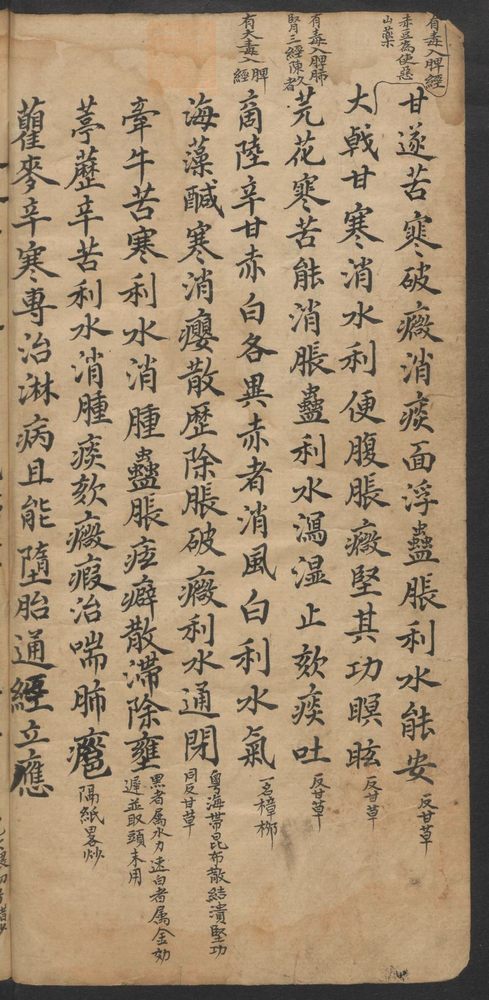 有毒入脾經
赤豆為使惡
山藥
甘遂苦寒破癥消痰面浮蠱脹利水能安
反甘草
大戟甘寒消水利便腹脹癥堅其功瞑眩
反甘草
有毒入脾肺
腎三經陳久者
芫花寒苦能消脹蠱利水瀉湿止欬痰吐
反甘草
有大毒入脾
經
商陸辛甘赤白各異赤者消風白利水氣
一名樟柳
海藻醎寒消癭散歷除脹破癥利水通閉
與海帶昆布散結潰堅功
同反甘草
牽牛苦寒利水消腫蠱脹痃癖散滯除壅
黑者属水力速白者属金効
遲並取頭末用
葶藶辛苦利水消腫痰欬癥瘕治喘肺癰
隔紙畧炒
瞿麥辛寒專治淋病且能墮胎通經立應